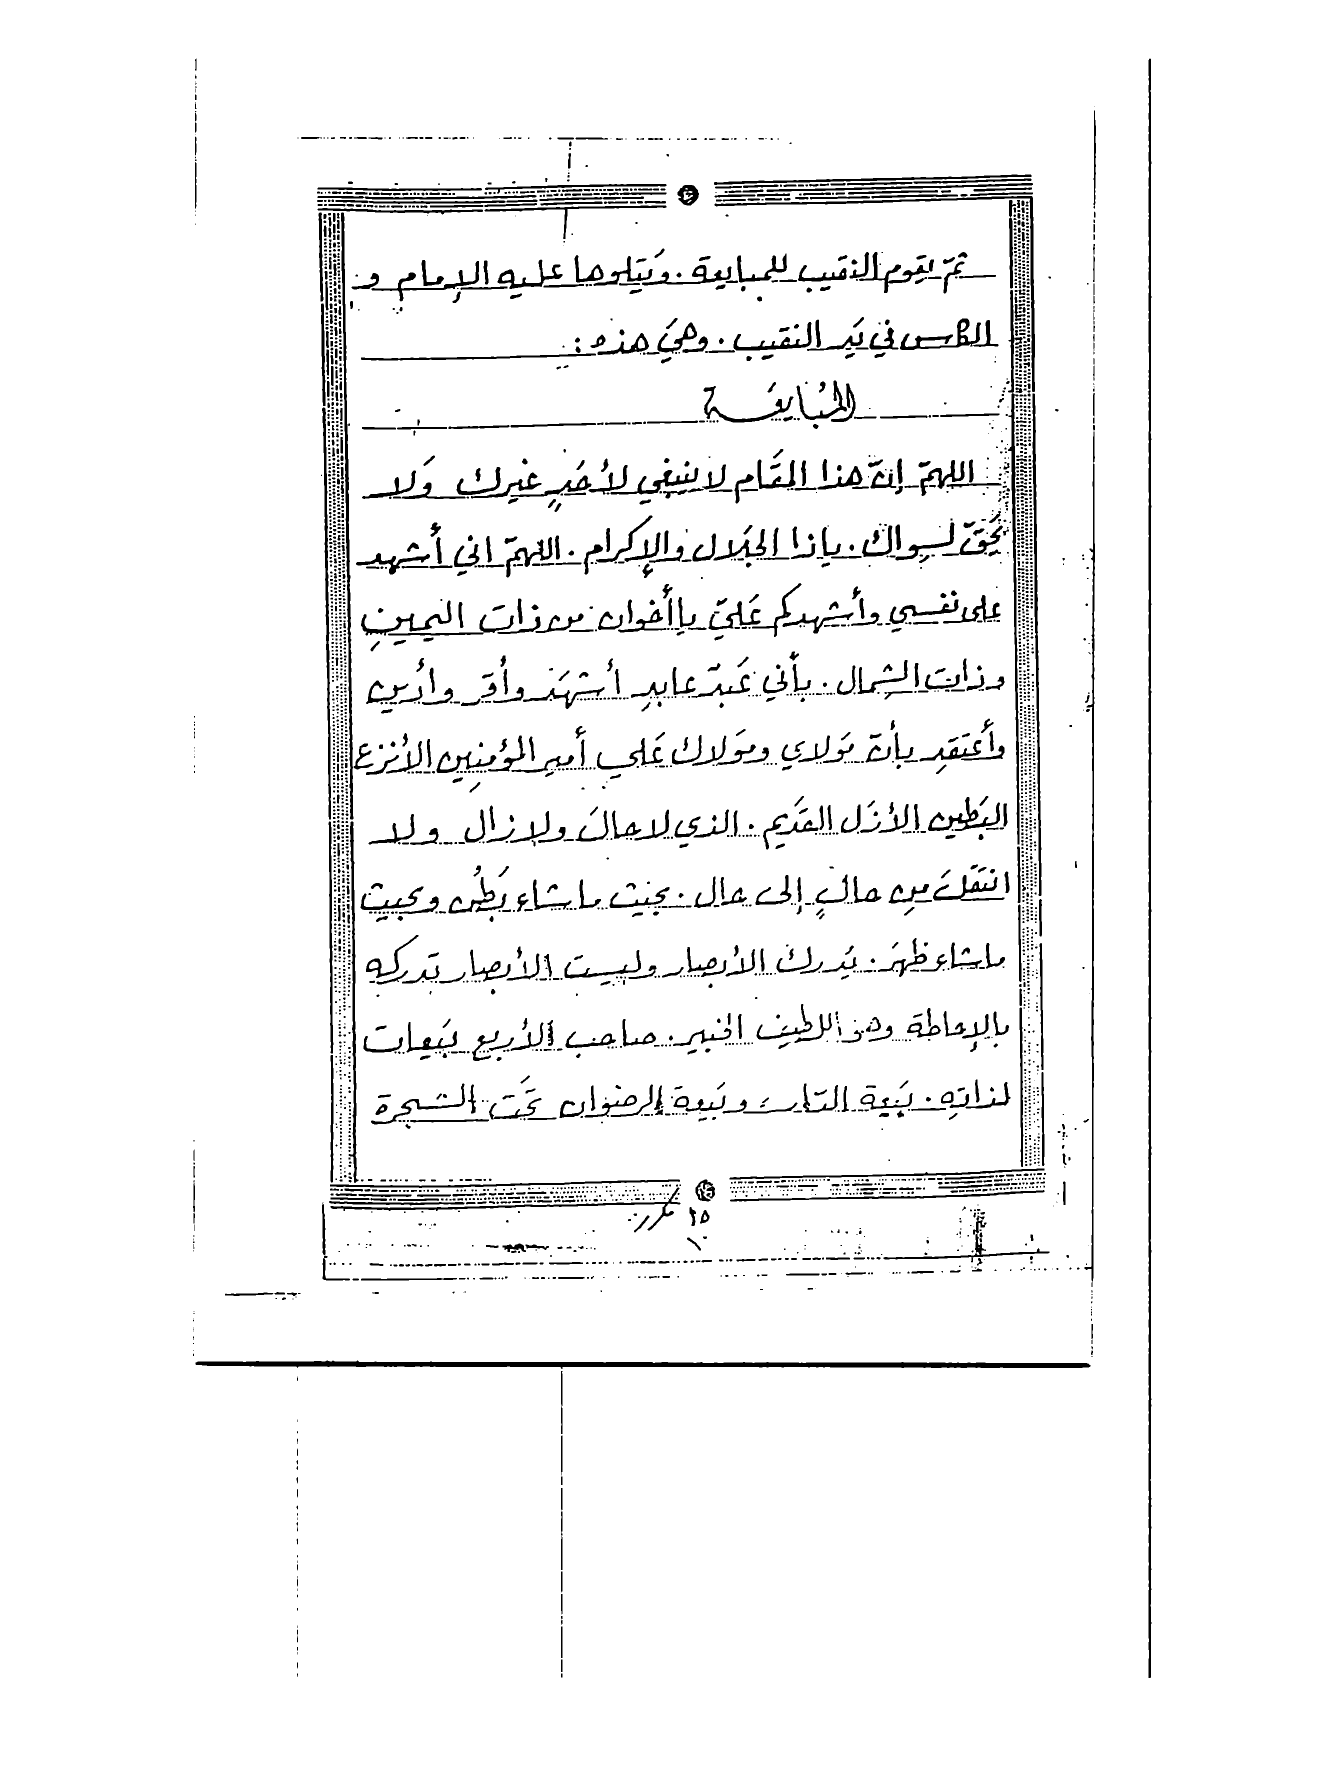 ثمّ يقوم النقيب للمبايعة. وَيَتلوها عليه الإمام و
الكاس في يَد النقيب. وهيَ هذه:
المُبَايَعَة
اللهمّ إنّ هذا المقَام لا ينبغي لأحَدٍ غيرك وَلا
يَحقّ لسِواك. ياذا الجَلال والإكرام. اللهمّ اني أشهد
على نفسي وأشهدكم عَليّ يا أخوان من ذات اليمينِ
وذات الشِمال. بأني عَبدٌ عابدِ أشهَد وأُقرّ وأدين
وأعتقدِ بأنّ مَولاي ومَولاك عَلي أمير المؤمنِين الأنزع
البَطين الأزَل القدَيم. الذي لا حالَ ولا زال ولا
انتَقَلَ مِن حالٍ إلى حال. بحيث ما شاء بَطُن وبحيث
ما شاء ظهَر. يَدرك الأبصار وليست الأبصار تدركه
بالإحاطة وهو اللطيف الخبير. صاحب الأربع بَيعات
لذاتِه. بَيعة الدّار وبَيعة الرضوان تحَت الشجرة
٢٥ مكرر
١٠